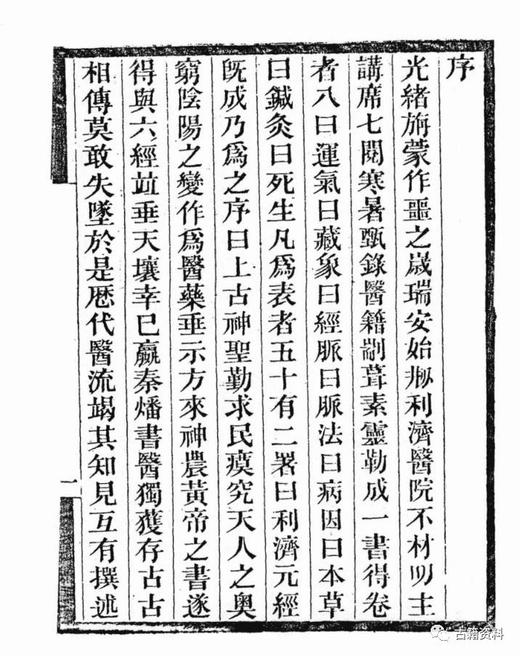 序
光緒旃蒙作噩之歲瑞安始刱利濟醫院不材㕥主
講席七閱寒暑甄錄醫籍剬葺素靈勒成一書得卷
者八曰運氣曰藏象曰經脈曰脈法曰病因曰本草
曰鍼灸曰死生凡爲表者五十有二署曰利濟元經
旣成乃爲之序曰上古神聖勤求民瘼究天人之奧
窮陰陽之變作爲醫藥垂示方來神農黃帝之書遂
得與六經竝垂天壤幸已嬴秦燔書醫獨獲存古古
相傳莫敢失墜於是歷代醫流竭其知見互有撰述
一
古籍资料